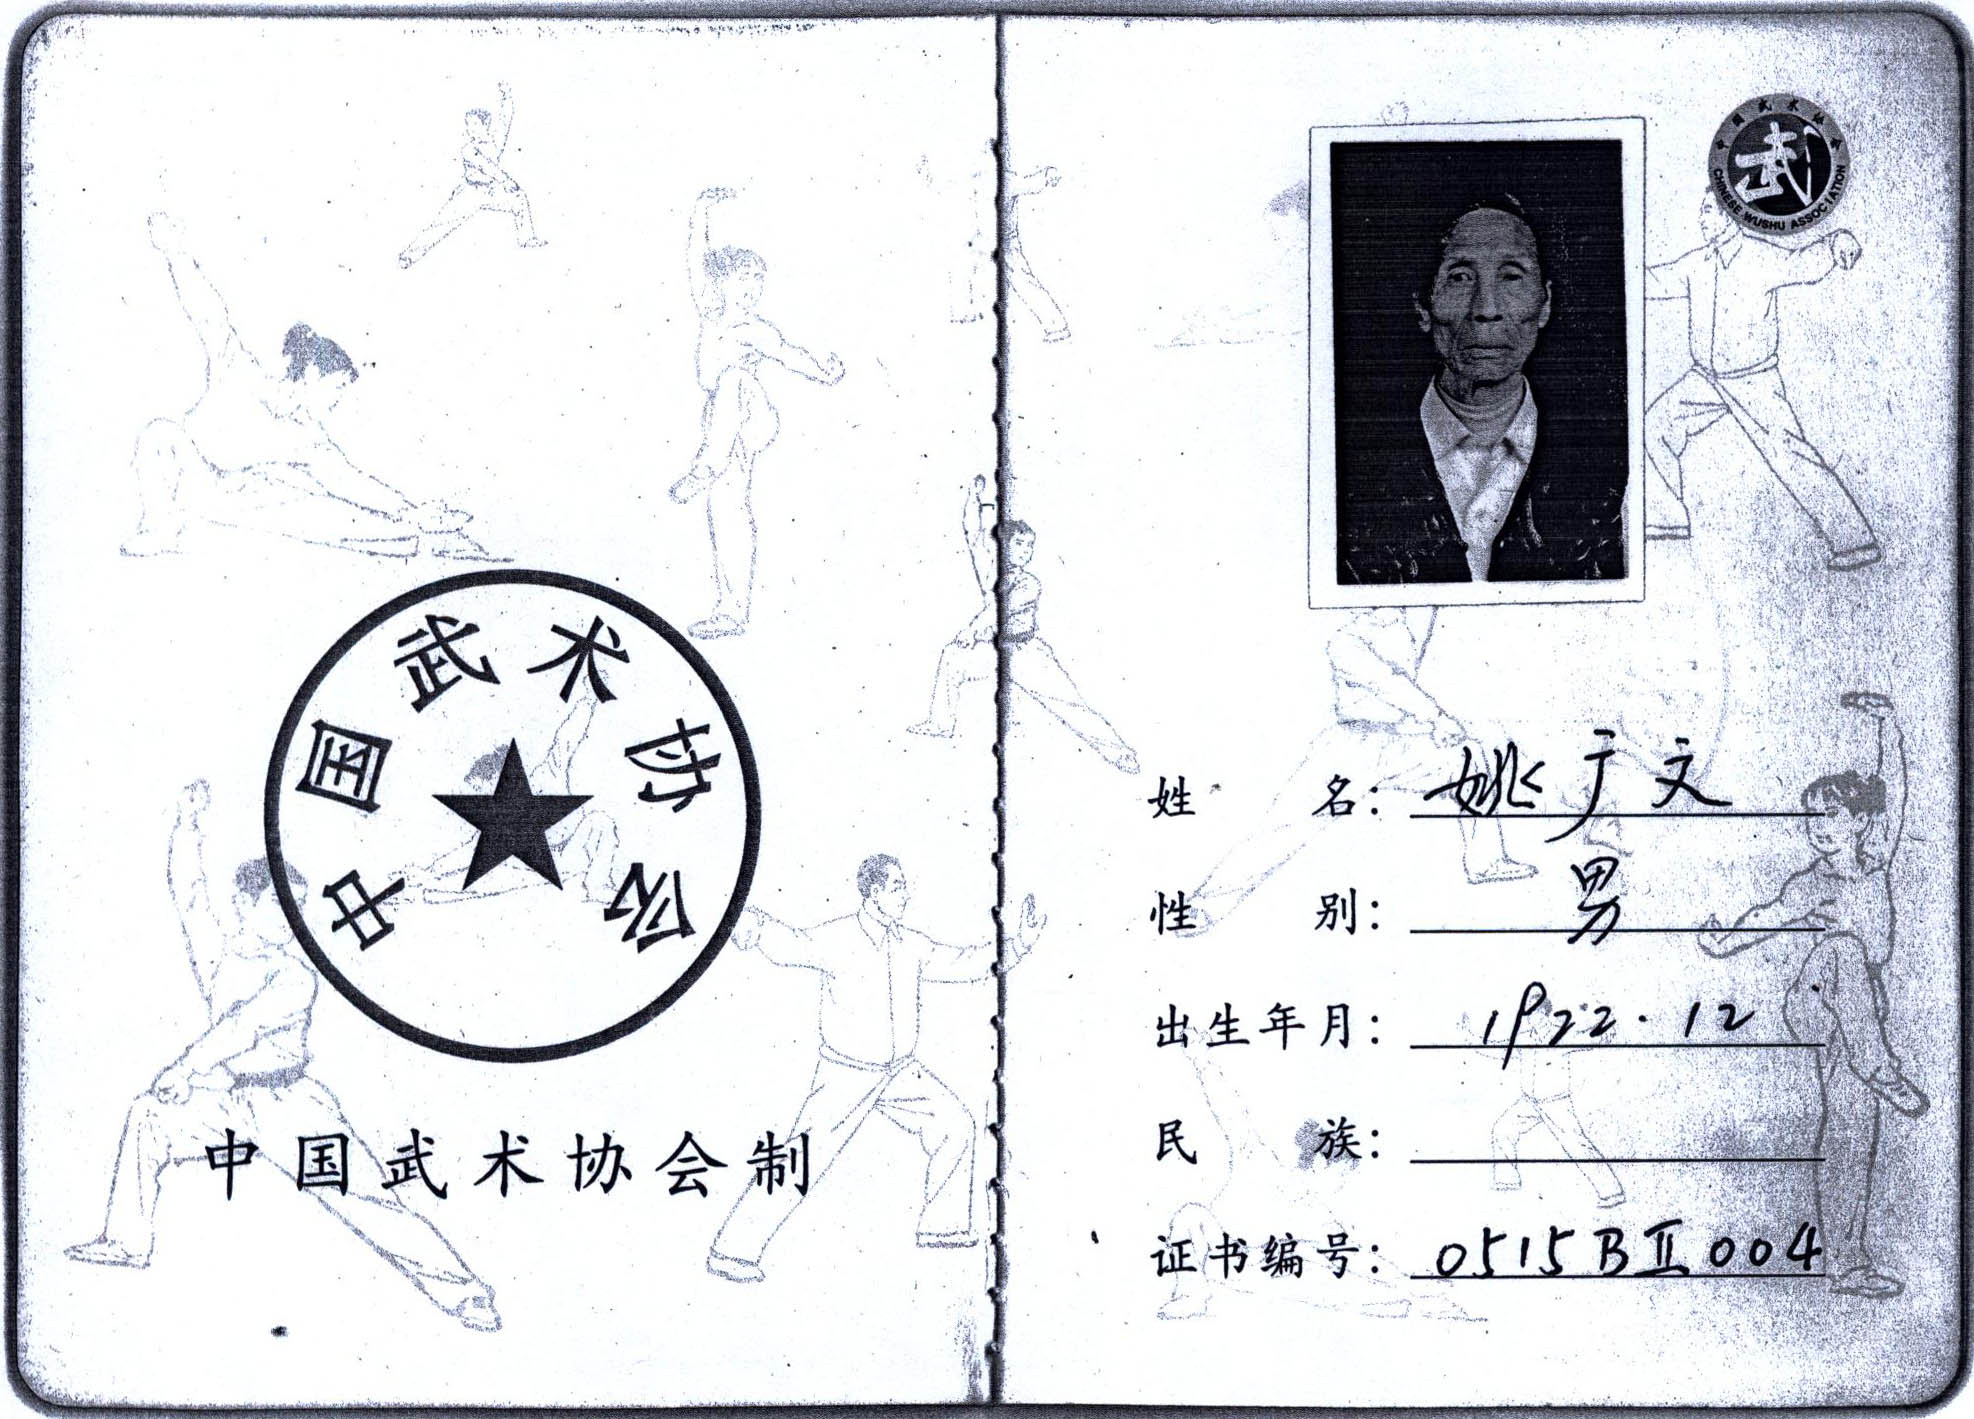 中国武术协会
中国武术协会制
中国武术协会
武
CHINESE WUSHU ASSOCIATION
姓名：姚广文
性别：男
出生年月：1922.12
民族：
证书编号：0515BⅡ004